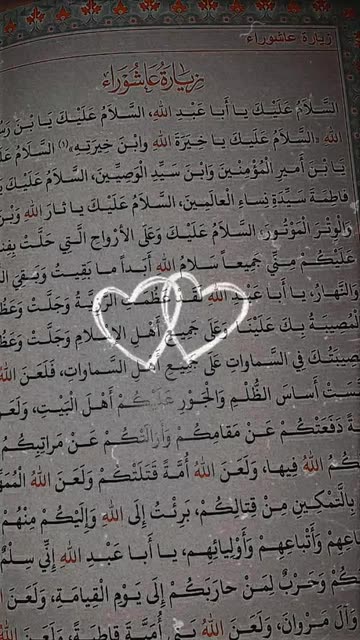 زيارة عاشوراء
زِيَارَةُ عَاشُورَاءَ
السَّلَامُ عَلَيْكَ يَا أَبَا عَبْدِ اللهِ، السَّلَامُ عَلَيْكَ يَا بْنَ
اللهِ السَّلَامُ عَلَيْكَ يَا خِيَرَةَ اللهِ وَابْنَ خِيَرَتِهِ،(١) السَّلَامُ
يَا بْنَ أَمِيرِ الْمُؤْمِنِينَ وَابْنَ سَيِّدِ الْوَصِيِّينَ، السَّلَامُ عَلَيْكَ
فَاطِمَةَ سَيِّدَةِ نِسَاءِ الْعَالَمِينَ، السَّلَامُ عَلَيْكَ يَا ثَارَ اللهِ
وَالْوِتْرَ الْمَوْتُورَ، السَّلَامُ عَلَيْكَ وَعَلَى الْأَرْوَاحِ الَّتِي حَلَّتْ
عَلَيْكُمْ مِنِّي جَمِيعاً سَلَامُ اللهِ أَبَداً مَا بَقِيتُ وَبَقِيَ
وَالنَّهَارُ، يَا أَبَا عَبْدِ اللهِ لَقَدْ عَظُمَتِ الرَّزِيَّةُ وَجَلَّتْ
الْمُصِيبَةُ بِكَ عَلَيْنَا وَعَلَى جَمِيعِ أَهْلِ الْإِسْلَامِ وَجَلَّتْ
مُصِيبَتُكَ فِي السَّمَاوَاتِ عَلَى جَمِيعِ أَهْلِ السَّمَاوَاتِ، فَلَعَنَ اللهُ
أَسَاسَ الظُّلْمِ وَالْجَوْرِ عَلَيْكُمْ أَهْلَ الْبَيْتِ،
دَفَعَتْكُمْ عَنْ مَقَامِكُمْ وَأَزَالَتْكُمْ عَنْ مَرَاتِبِكُمُ
اللهُ فِيهَا، وَلَعَنَ اللهُ أُمَّةً قَتَلَتْكُمْ وَلَعَنَ اللهُ
بِالتَّمْكِينِ مِنْ قِتَالِكُمْ، بَرِئْتُ إِلَى اللهِ وَإِلَيْكُمْ مِنْهُمْ
وَأَتْبَاعِهِمْ وَأَوْلِيَائِهِمْ، يَا أَبَا عَبْدِ اللهِ إِنِّي سِلْمٌ
وَحَرْبٌ لِمَنْ حَارَبَكُمْ إِلَى يَوْمِ الْقِيَامَةِ، وَلَعَنَ
وَآلَ مَرْوَانَ، وَلَعَنَ اللهُ بَنِي أُمَيَّةَ قَاطِبَةً، وَلَعَنَ اللهُ